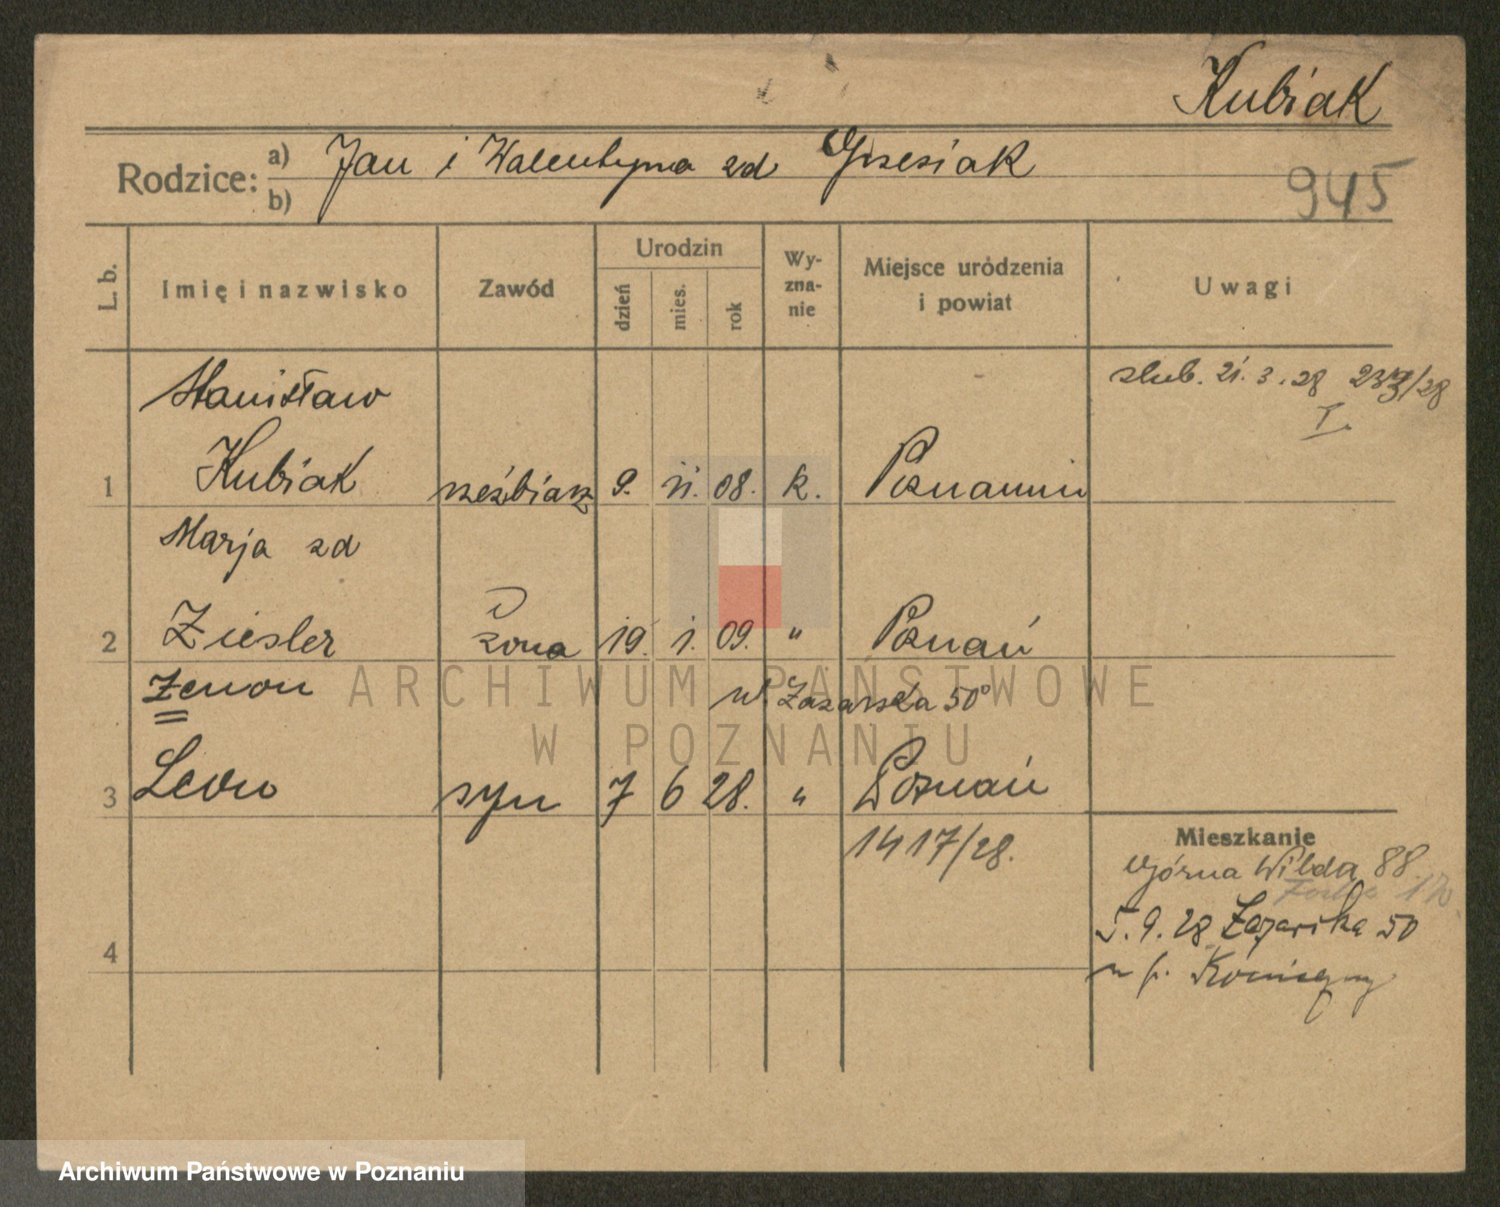 Kubiak
Rodzice: a) Jan i Walentyna zd Grzesiak
b)
945
L. b.
Imię i nazwisko
Zawód
Urodzin
dzień
mies.
rok
Wy-
zna-
nie
Miejsce urodzenia
i powiat
Uwagi
Stanisław
ślub. 21. 3. 28
I.
1 Kubiak rzeźbiarz 9. 11. 08. k. Poznaniu
Marja zd
2 Ziesler żona 19. 1. 09. " Poznań
Zenon
w. Łazarska 50
3 Leon syn 7 6 28. " Poznań
1417/28.
Mieszkanie
Górna Wilda 88
5. 9. 28 Łazarska 50
4
ARCHIWUM PAŃSTWOWE
W POZNANIU
Archiwum Państwowe w Poznaniu